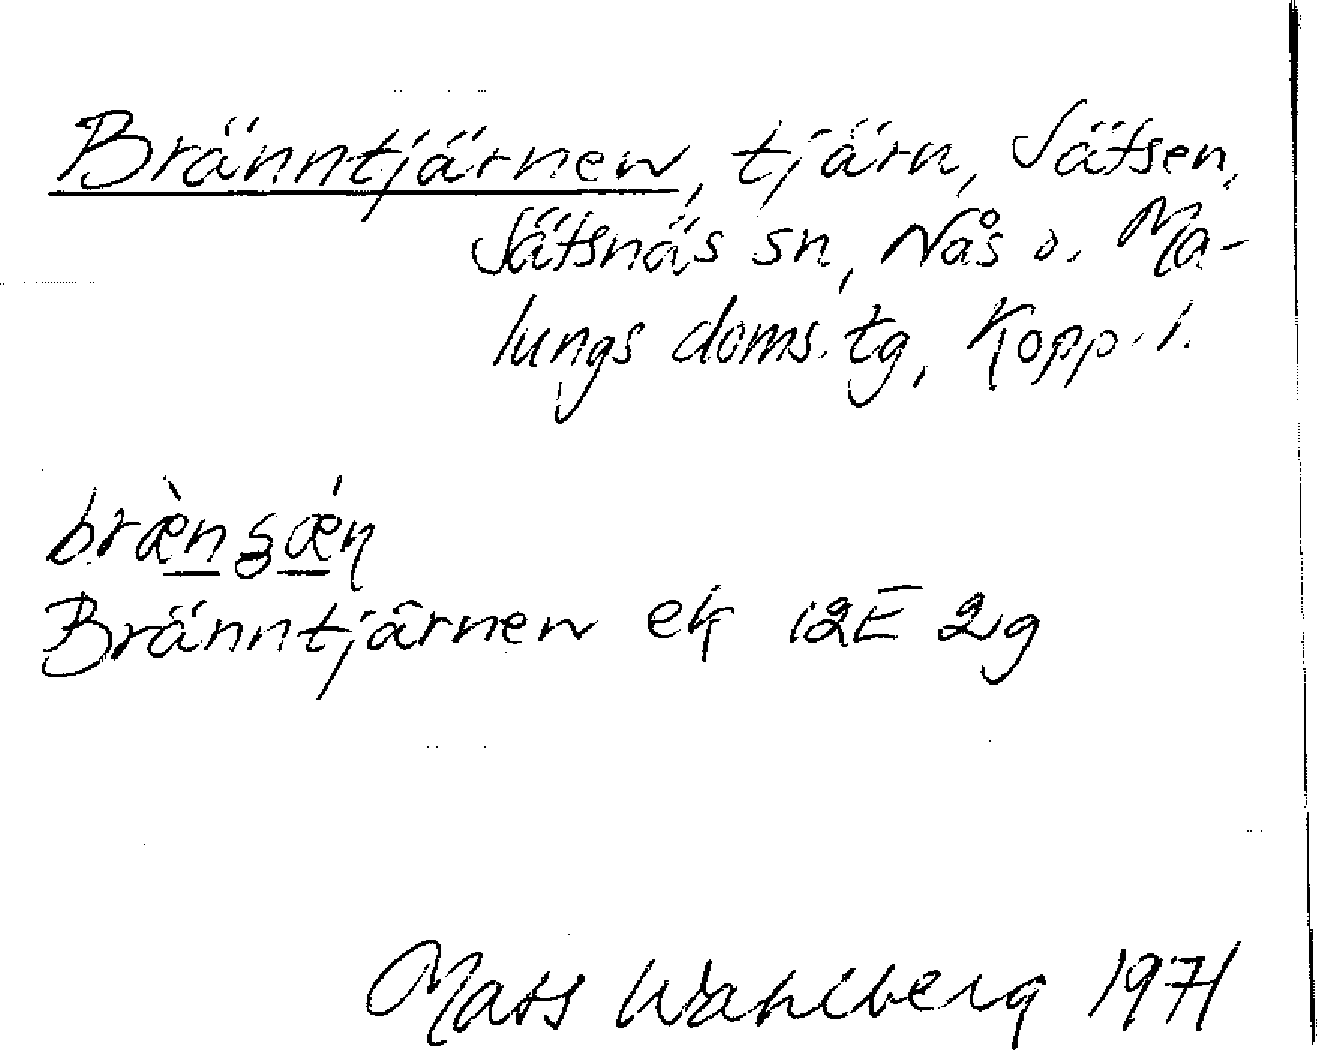 Bränntjärnen, tjärn, Sätsen,
Sätsnäs sn, Nås o. Ma-
lungs doms. tg, Kopp. l.
Bränntjärnen ek 12E 2g
Mats Wahlberg 1971